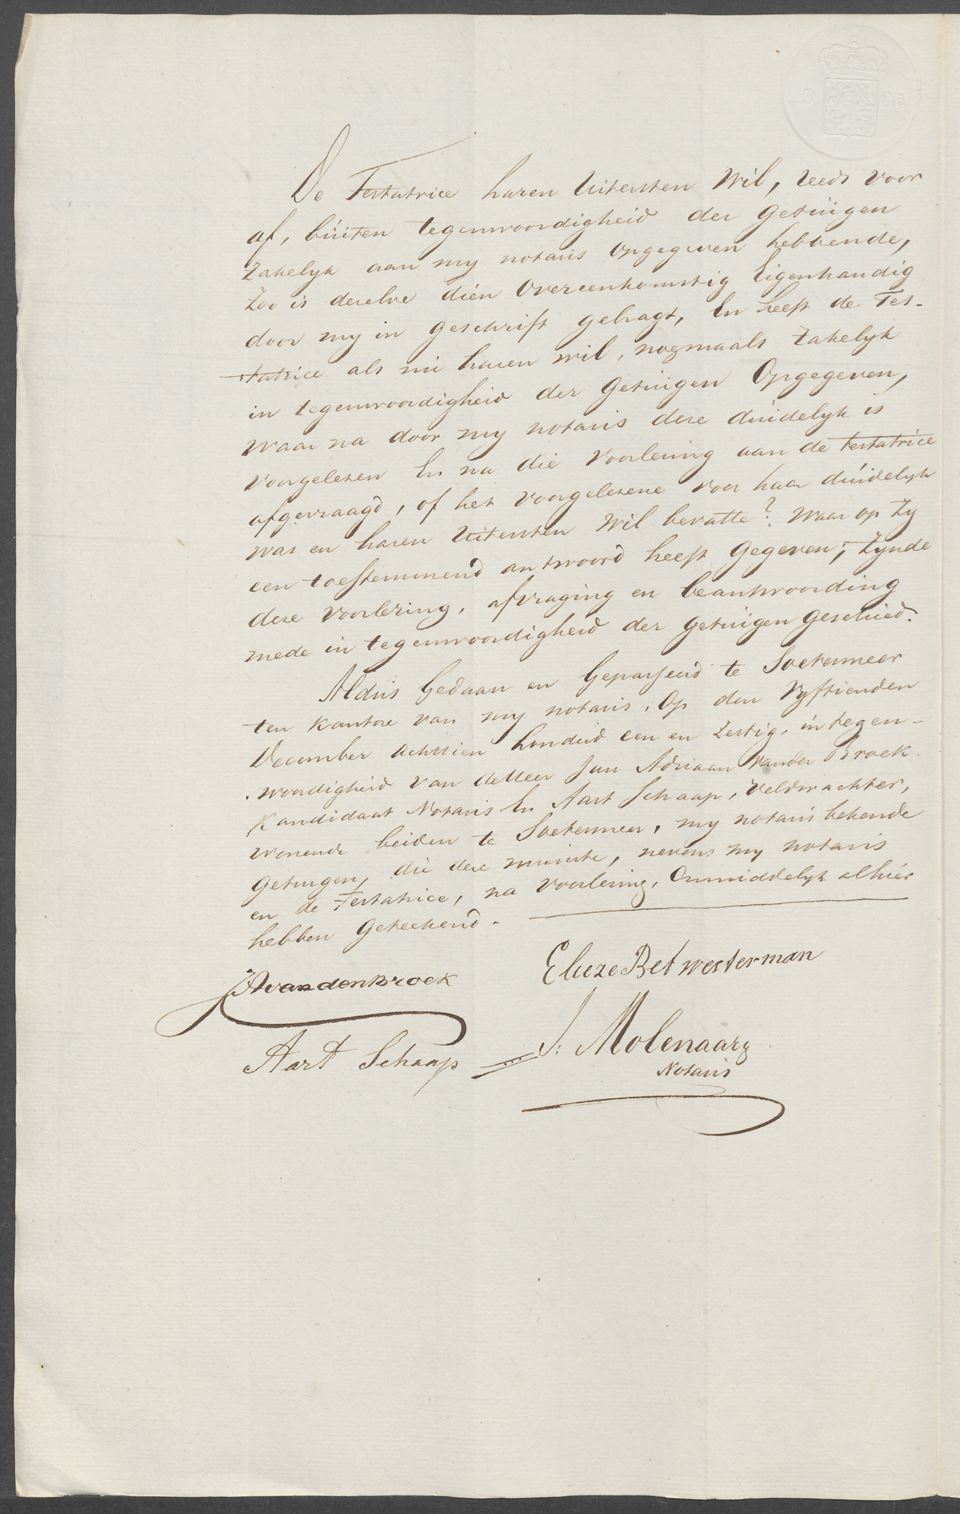 De Testatrice haren Uitersten Wil, reeds voor
af, buiten tegenwoordigheid der getuigen
Zakelyk aan my notaris opgegeven hebbende,
Zoo is dezelve dien Overeenkomstig Eigenhandig
door my in geschrift gebragt, En heeft de Tes-
tatrice als nu haren wil, nogmaals Zakelyk
in tegenwoordigheid der getuigen Opgegeven,
waar na door my notaris deze duidelyk is
voorgelezen En na die Voorlezing aan de testatrice
afgevraagd, of het voorgelezene voor haar duidelyk
was en haren Uitersten Wil bevatte? Waar op Zy
een toestemmend antwoord heeft gegeven; Zynde
deze voorlezing, afvraging en beantwoording
mede in tegenwoordigheid der getuigen geschied.
Aldus Gedaan en Gepasseerd te Soetermeer
ten kantore van my notaris, Op den Vyftienden
December achttien honderd een en Zestig, in tegen-
woordigheid van de Heer Jan Adriaan van den Broek
Kandidaat Notaris En Aart Schaap, Veldwachter,
wonende beiden te Soetermeer, my notaris bekende
getuigen, die deze minute, nevens my notaris
en de Testatrice, na voorlezing, Onmiddelyk alhier
hebben geteekend.
JAvandenBroek
ElizeBet westerman
Aart Schaap
J: Molenaar
Notaris
50 C.